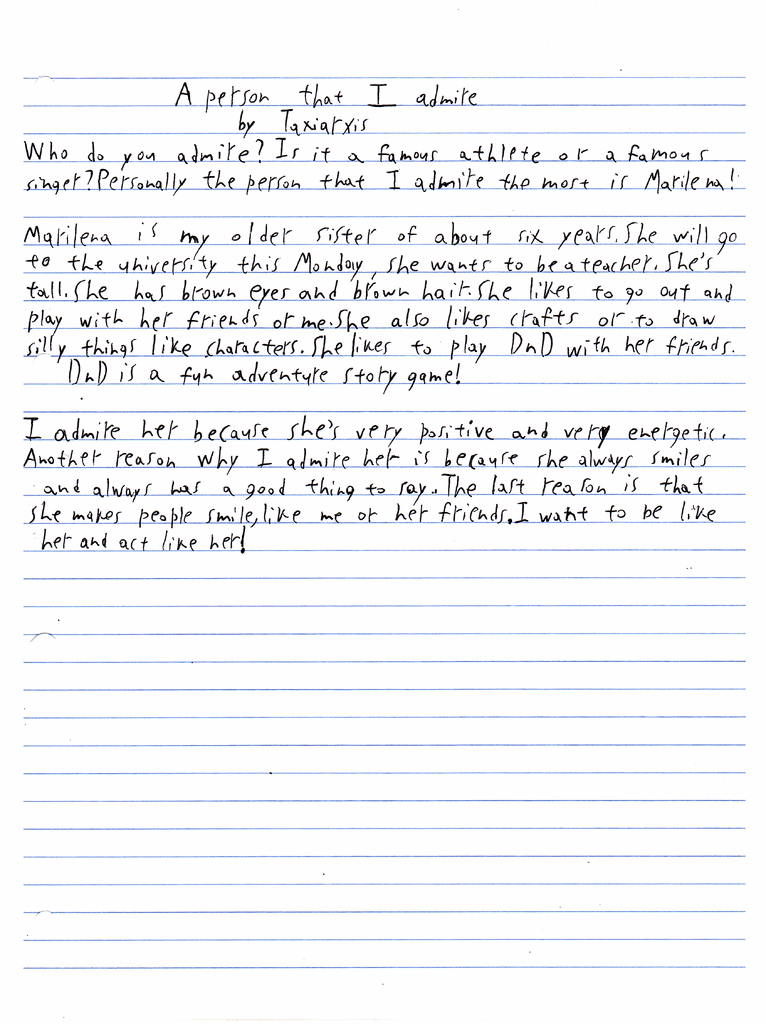 A person that I admire
by Taxiarxis
Who do you admire? Is it a famous athlete or a famous
singer? Personally the person that I admire the most is Marilena!
Marilena is my older sister of about six years. She will go
to the university this Monday, she wants to be a teacher. She's
tall. She has brown eyes and brown hair. She likes to go out and
play with her friends or me. She also likes crafts or to draw
silly things like characters. She likes to play DnD with her friends.
DnD is a fun adventure story game!
I admire her because she's very positive and very energetic.
Another reason why I admire her is because she always smiles
and always has a good thing to say. The last reason is that
she makes people smile, like me or her friends. I want to be like
her and act like her!